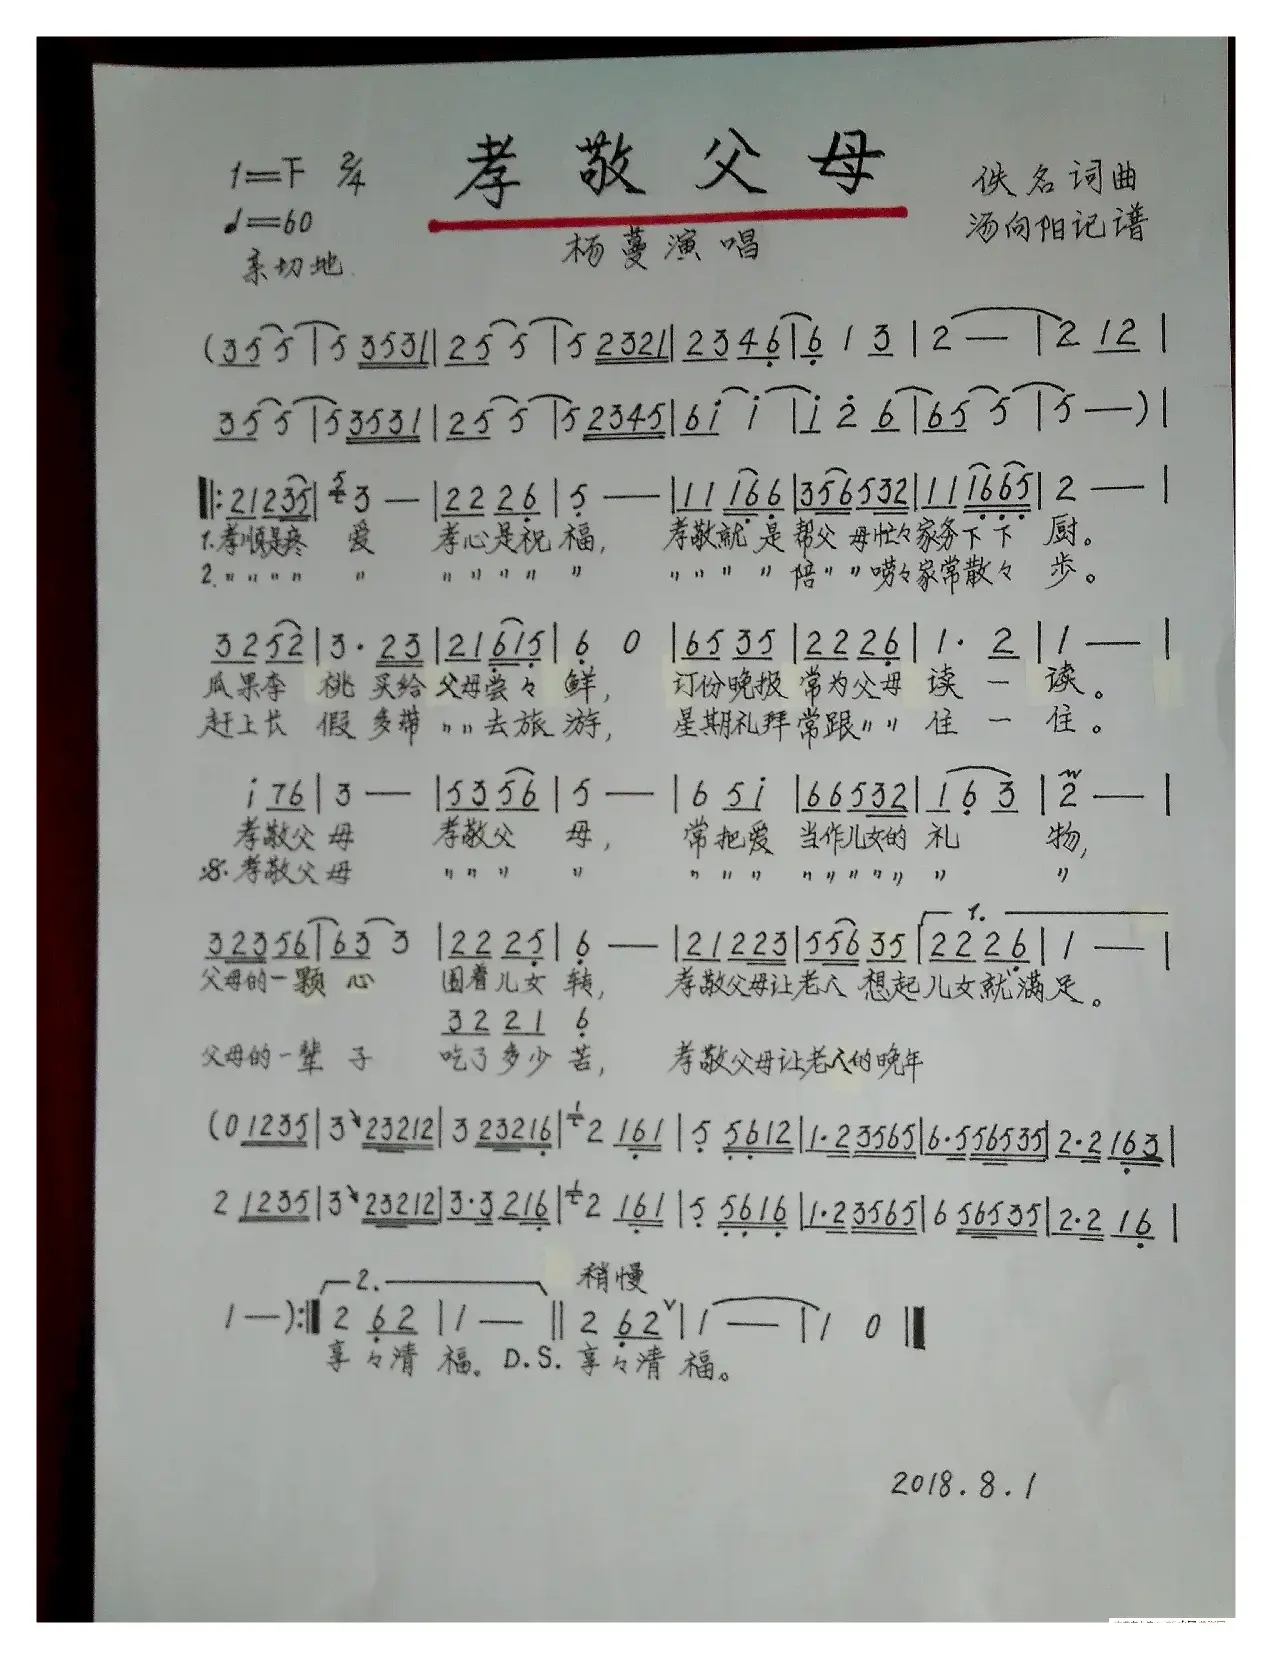 孝敬父母
1=F 2/4
♩=60
亲切地
佚名词曲
汤向阳记谱
杨蔓演唱
(3 5 5 | 5 3531 | 2 5 5 | 5 2321 | 23 46 | 6 1 3 | 2 — | 2 12 |
3 5 5 | 5 3531 | 2 5 5 | 5 2345 | 6 i i | i 2 6 | 6 5 5 | 5 —) |
‖: 21235 | 3 — | 22 26 | 5 — | 11 166 | 356532 | 11 1665 | 2 — |
1.孝顺是疼 爱 孝心是祝福, 孝敬就是帮父母忙々家务下下厨。
2.〃〃〃〃 〃 〃〃〃〃〃 〃〃〃〃陪〃〃唠々家常散々步。
32 52 | 3· 23 | 21 615 | 6 0 | 65 35 | 22 26 | 1· 2 | 1 — |
瓜果李桃买给父母尝々鲜, 订份晚报常为父母读一读。
赶上长假多带〃〃去旅游, 星期礼拜常跟〃〃住一住。
i 76 | 3 — | 53 56 | 5 — | 6 5i | 66532 | 1 6 3 | 2 — |
孝敬父母 孝敬父母, 常把爱当作儿女的礼物,
𝄋 孝敬父母 〃〃〃 〃 〃〃〃 〃〃〃〃〃 〃 〃
1.
323 56 | 63 3 | 22 25 | 6 — | 21 223 | 556 35 | 22 26 | 1 — |
父母的一颗心 围着儿女转, 孝敬父母让老人想起儿女就满足。
32 21 6
父母的一辈子 吃了多少苦, 孝敬父母让老人的晚年
(0 1235 | 3 23212 | 3 23216 | 2 161 | 5 5612 | 1·2 3565 | 6·5 56535 | 2·2 163 |
2 1235 | 3 23212 | 3·3 216 | 2 161 | 5 5616 | 1·2 3565 | 6 56535 | 2·2 16 |
2. 稍慢
1 —) :‖ 2 62 | 1 — ‖ 2 62 ∨ | 1 — | 1 0 ‖
享々清福。D.S. 享々清福。
2018.8.1